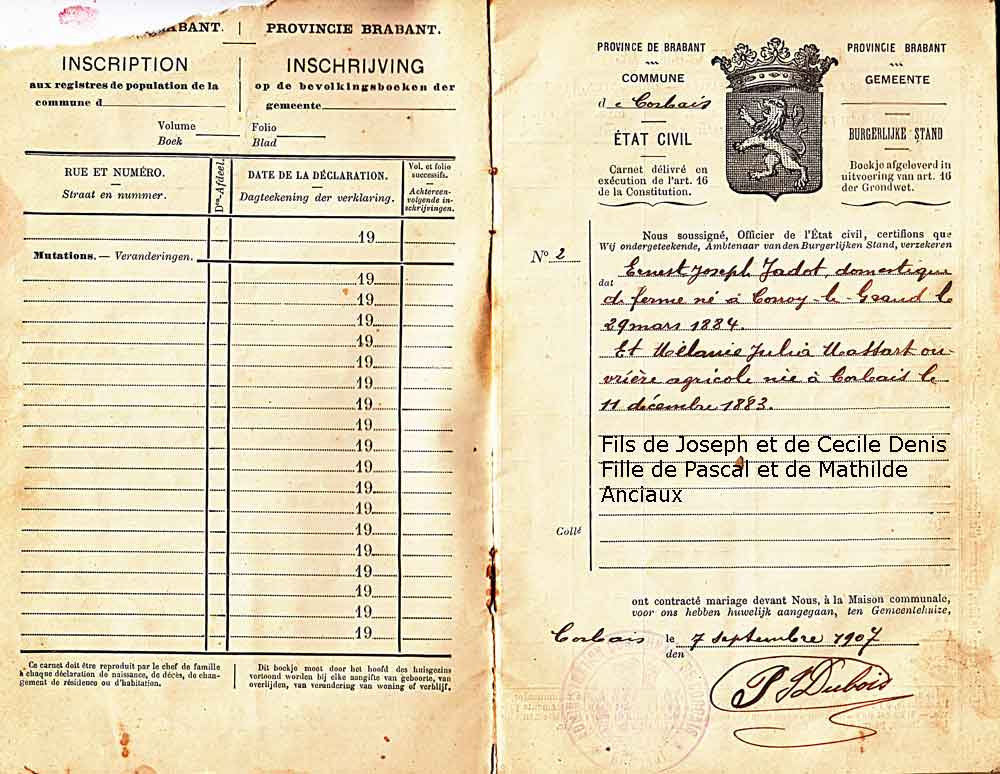 BRABANT. | PROVINCIE BRABANT.
INSCRIPTION
aux registres de population de la
commune d
INSCHRIJVING
op de bevolkingsboeken der
gemeente
Volume Folio
Boek Blad
RUE ET NUMÉRO.
Straat en nummer.
Don-Afdeel.
DATE DE LA DÉCLARATION.
Dagteekening der verklaring.
Vol. et folio
successifs.
Achtereen-
volgende in-
schrijvingen.
19
Mutations. — Veranderingen.
19
19
19
19
19
19
19
19
19
19
19
19
19
19
19
19
19
19
Ce carnet doit être reproduit par le chef de famille
à chaque déclaration de naissance, de décès, de chan-
gement de résidence ou d'habitation.
Dit boekje moet door het hoofd des huisgezins
vertoond worden bij elke aangifte van geboorte, van
overlijden, van verandering van woning of verblijf.
PROVINCE DE BRABANT
COMMUNE
de Corbais
ÉTAT CIVIL
Carnet délivré en
exécution de l'art. 16
de la Constitution.
PROVINCIE BRABANT
GEMEENTE
BURGERLIJKE STAND
Boekje afgeleverd in
uitvoering van art. 16
der Grondwet.
Nous soussigné, Officier de l'État civil, certifions que
Wij ondergeteekende, Ambtenaar van den Burgerlijken Stand, verzekeren
No 2
dat
Ernest Joseph Jadot, domestique
de ferme né à Corroy-le-Grand le
29 mars 1884.
Et Mélanie Julia Massart ou-
vrière agricole née à Corbais le
11 décembre 1883.
Fils de Joseph et de Cecile Denis
Fille de Pascal et de Mathilde
Anciaux
Collé
ont contracté mariage devant Nous, à la Maison communale,
voor ons hebben huwelijk aangegaan, ten Gemeentehuize,
Corbais le 7 septembre 1907
den
P J Dubois